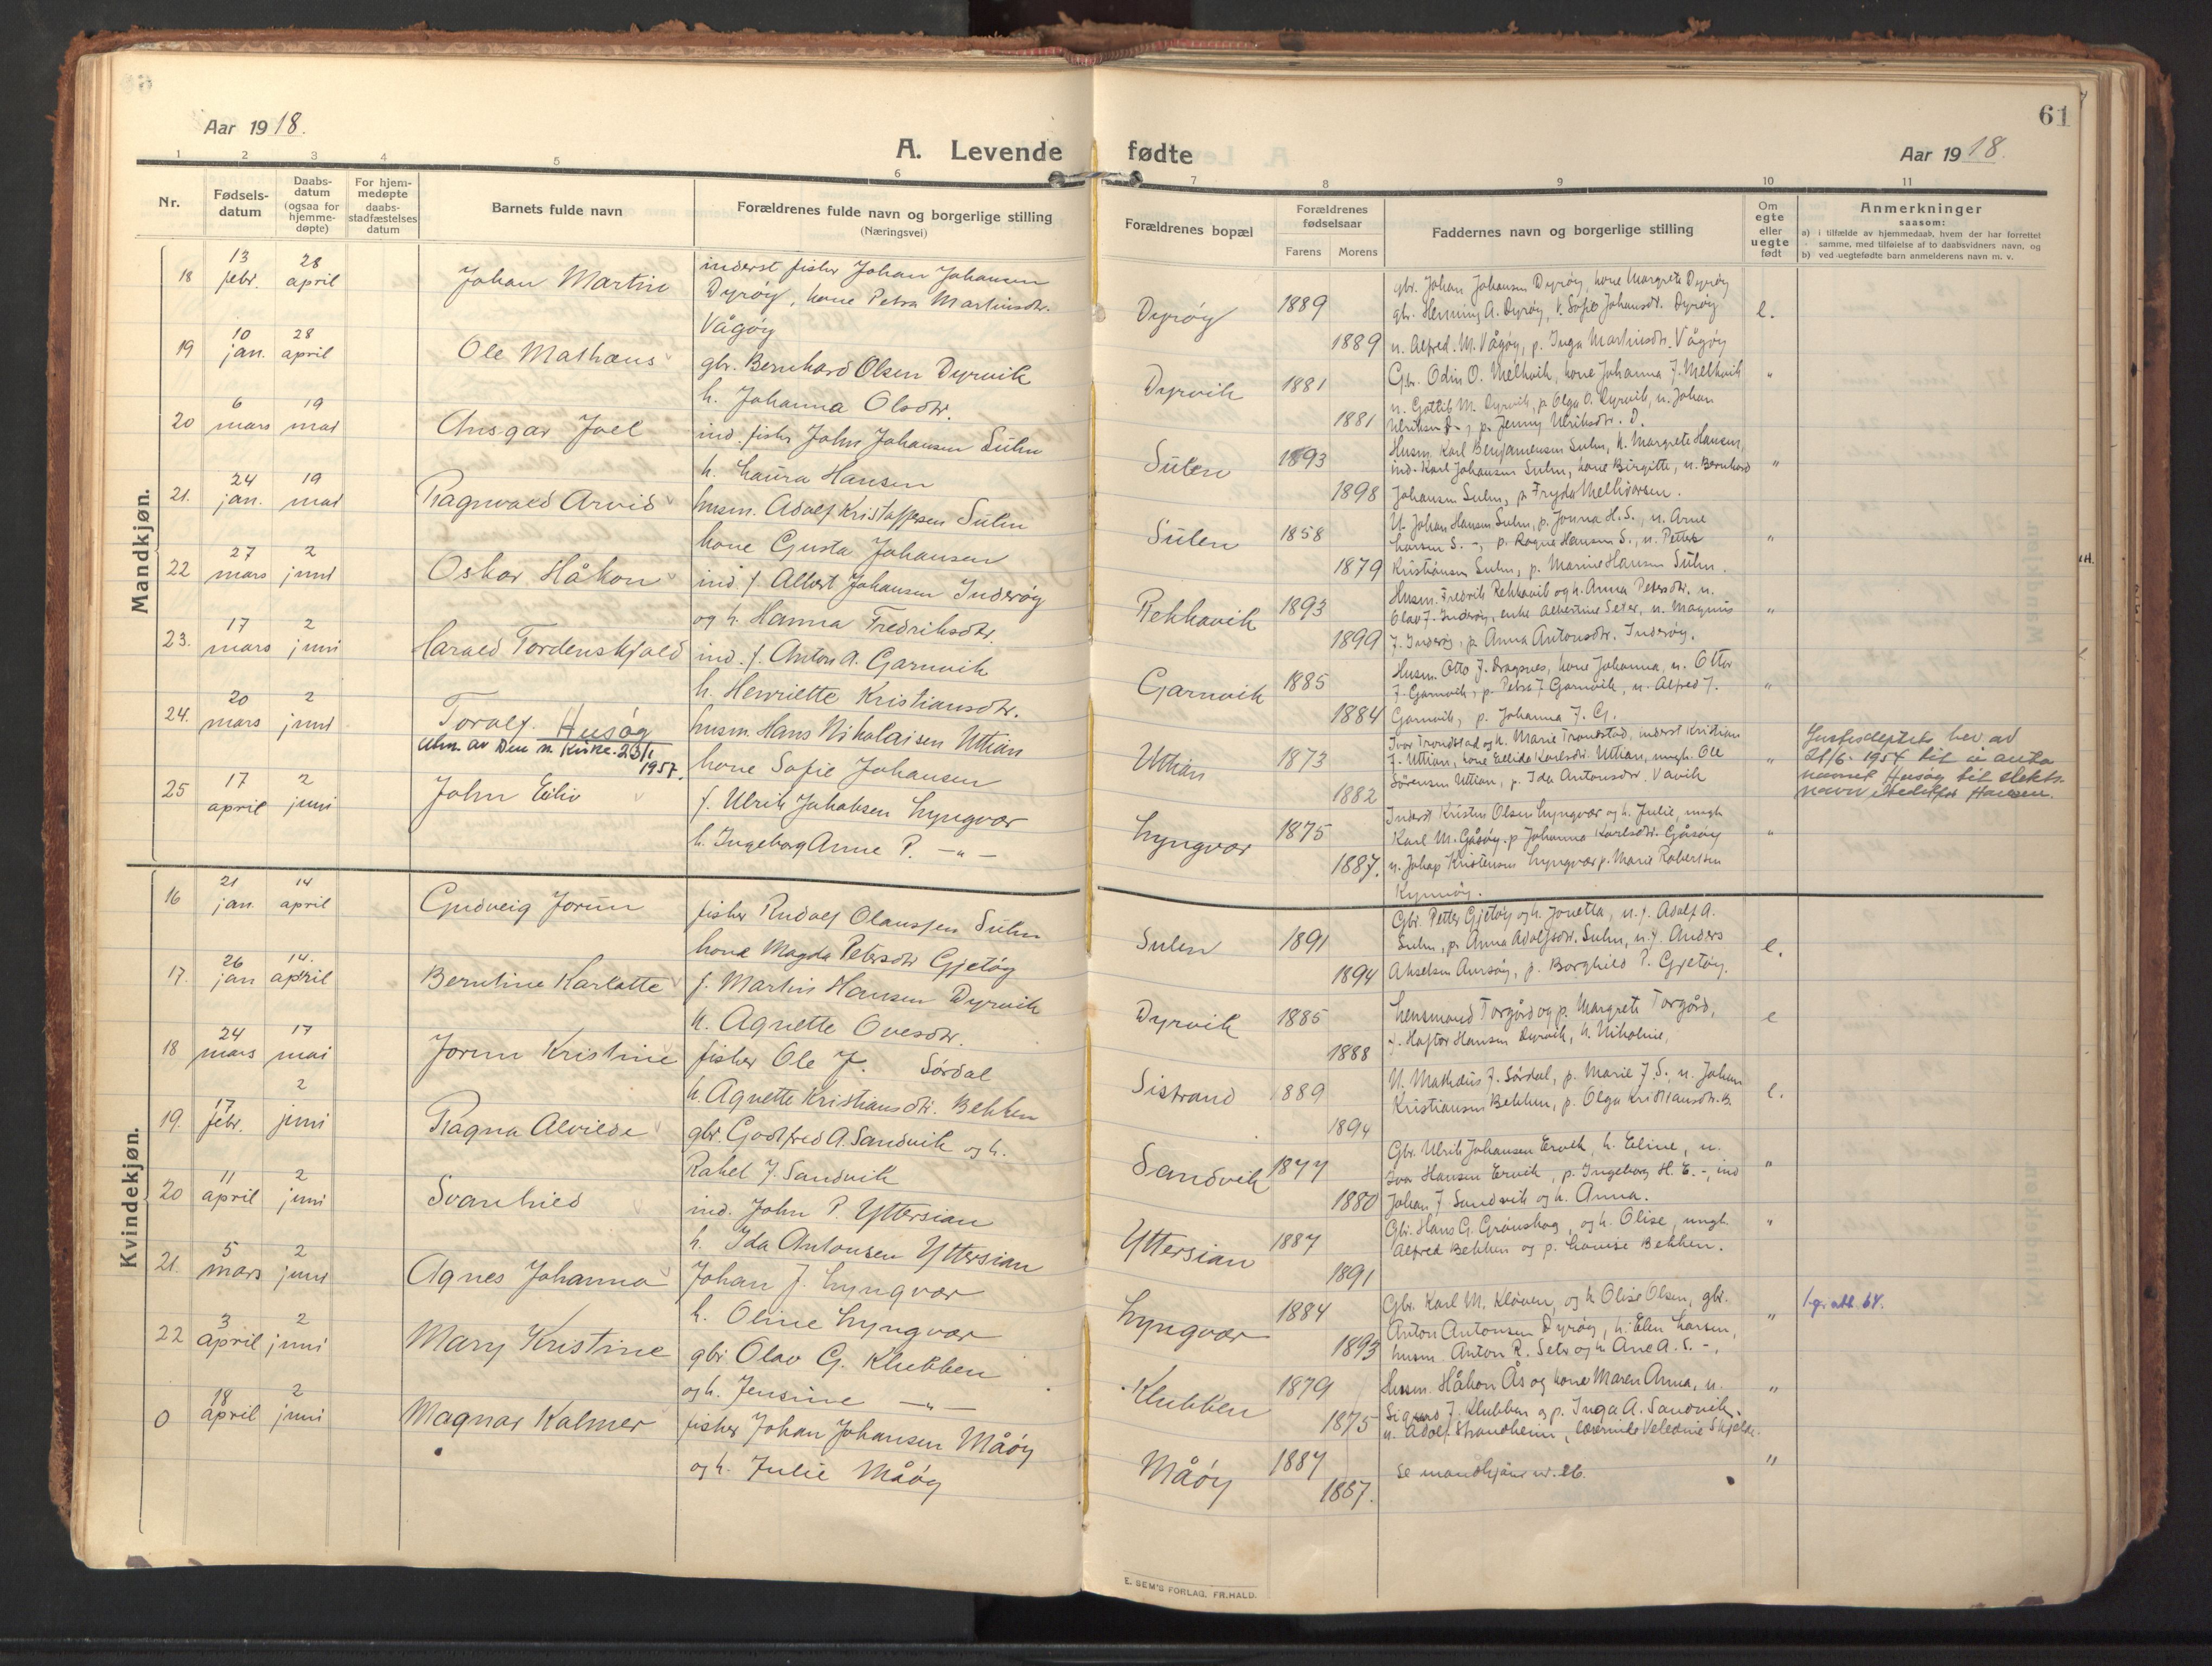 61
Aar 1918.
A. Levende fødte
Aar 1918.
1 2 3 4 5 6 7 8 9 10 11
Nr.
Fødsels-
datum
Daabs-
datum
(ogsaa for
hjemme-
døpte)
For hjem-
medøpte
daabs-
stadfæstelses
datum
Barnets fulde navn
Forældrenes fulde navn og borgerlige stilling
(Næringsvei)
Forældrenes bopæl
Forældrenes
fødselsaar
Farens Morens
Faddernes navn og borgerlige stilling
Om
egte
eller
uegte
født
Anmerkninger
saasom:
a) i tilfælde av hjemmedaab, hvem der har forrettet
samme, med tilføielse af to daabsvidners navn, og
b) ved uegtefødte barn anmelderens navn m. v.
Mandkjøn.
18 13 febr. 28 april Johan Martin
inderst fisker Johan Johansen
Dyrøy, kone Petra Martinsdtr.
Vågøy
Dyrøy 1889 1889
gbr. Johan Johansen Dyrøy, kone Margrete Dyrøy
gbr. Henning A. Dyrøy, k. Sofie Johansdr. Dyrøy
u. Alfred M. Vågøy, p. Inga Martinsdtr. Vågøy
e.
19 10 jan. 28 april Ole Mathæus
gbr. Bernhard Olsen Dyrvik
h. Johanna Olsdtr.
Dyrvik 1881 1881
Gbr. Odin O. Melkvik, kone Johanna J. Melkvik
u. Gottlib M. Dyrvik, p. Olga O. Dyrvik, u. Johan
Ulriksen D-, p. Jenny Ulriksdtr. D.
"
20 6 mars 19 mai Ansgar Joel
ind. fisker John Johansen Suln
h. Laura Hansen
Sulen 1893 1898
Husm. Karl Benjaminsen Suln, k. Margrete Hansen,
ind. Karl Johansen Suln, kone Birgitte, u. Bernhard
Johansen Suln, p. Fryda Melkiorsen.
"
21. 24 jan. 19 mai Ragnvald Arvid
husm. Adolf Kristoffersen Suln
kone Gusta Johansen
Sulen 1858 1879
U. Johan Hansen Suln, p. Jonna H. S., u. Arne
Larsen S. -, p. Ragna Hansen S., u. Petter
Kristiansen Suln, p. Marine Hansen Suln.
"
22 27 mars 2 juni Oskar Håkon
ind. f. Albert Johansen Inderøy
og h. Hanna Fredriksdtr.
Rekkavik 1893 1899
Husm. Fredrik Rekkavik og h. Anna Petersdtr. u.
Olav J. Inderøy, enke Albertine Seter, u. Magnus
J. Inderøy, p. Anna Antonsdtr. Inderøy.
"
23. 17 mars 2 juni Harald Tordenskjold
ind. f. Anton A. Garnvik
h. Henriette Kristiansdtr.
Garnvik 1885 1884
Husm. Otto J. Dragsnes, kone Johanna, u. Ottar
J. Garnvik, p. Petra J Garnvik, u. Alfred J.
Garnvik, p. Johanna J. G.
"
24. 20 mars 2 juni Toralf Husøy
Utm. av Den n. Kirke. 23/1
1957.
husm. Hans Nikolaisen Uttian
kone Sofie Johansen
Uttian 1873 1882
Ivar Trondstad og h. Marie Trondstad, inderst Kristian
J. Uttian, kone Ellida Karlsdtr. Uttian, ungk. Ole
Sørensen Uttian, p. Ida Antonsdtr. Vavik
"
Justisdeptets bev. av
21/6-1954 til å anta
navnet Husøy til slekts-
navn istedetfor Hansen.
25 17 april 2 juni John Eiliv
f. Ulrik Jakobsen Lyngvær
h. Ingeborg Anne P. -"-
Lyngvær 1875 1887.
Inderst Kristen Olsen Lyngvær og h. Julie, ungk.
Karl M. Gåsøy. p Johanna Karlsdtr. Gåsøy
u. Johan Kristensen Lyngvær p. Marie Robertsen
Kynnøy.
"
Kvindekjøn.
16 21 jan. 14 april Gudveig Jorun
fisker Rudolf Olaussen Suln
kone Magda Petersdtr Gjetøy
Sulen 1891 1894
Gbr. Petter Gjetøy og h. Jonetta, u. f. Adolf A.
Suln, p. Anna Adolfsdtr. Suln, u. f. Anders
Akselsen Aursøy, p. Borghild P. Gjetøy.
e.
17. 26 jan 14. april Berntine Karlotte
f. Martin Hansen Dyrvik
h. Agnette Ovesdtr.
Dyrvik 1885 1888
Lensmand Torgård og p. Margrete Torgård,
f. Haftor Hansen Dyrvik, h. Nikoline,
e
18 24 mars 17 mai Jorun Kristine
fisker Ole J. Sørdal
h. Agnette Kristiansdtr. Bekken
Sistrand 1889 1894
U. Mathæus J. Sørdal, p. Marie J. S., u. Johan
Kristiansen Bekken, p. Olga Kristiansdtr. B.
e.
19. 17 febr. 2 juni Ragna Alvilde
gbr. Godtfred A. Sandvik og h.
Rakel J. Sandvik
Sandvik 1877 1880
Gbr. Ulrik Johansen Ervik, h. Eline, u.
Ivar Hansen Ervik, p. Ingeborg H. E. -, ind
Johan J Sandvik og h. Anna.
"
20 11 april 2 juni Svanhild
ind. John P. Yttersian
h. Ida Antonsen Yttersian
Yttersian 1887 1891
Gbr. Hans G. Grønskag, og h. Olise, ungk.
Alfred Bekken og p. Lovise Bekken.
"
21. 5 mars 2 juni Agnes Johanna
Johan J. Lyngvær
h. Oline Lyngvær
Lyngvær 1884 1893
Gbr. Karl M. Kløven, og h Olise Olsen, gbr.
Anton Antonsen Dyrøy, h. Elen Larsen,
husm. Anton R. Seter og h Ane A. S. -,
"
1. gr. att. 64.
22 3 april 2 juni Mary Kristine
gbr Olav G. Klubben
og h. Jensine -"-
Klubben 1879 1875
Husm. Håkon Ås og kone Maren Anna, u.
Sigurd J. Klubben og p. Inga A. Sandvik.
u. Adolf Strandheim, lærerinde Veledine Skjeldr.
"
0 18 april 2 juni Magnar Kalmer
fisker Johan Johansen Måøy
og h. Julie Måøy
Måøy 1887 1887.
Se mandkjøn nr. 26.
"
E. SEM'S FORLAG, FR.HALD.